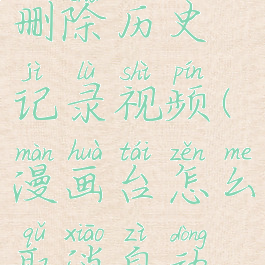 删除历史
jì lù shì pín
记录视频(
màn huà tái zěn me
漫画台怎么
qǔ xiāo zì dòng
取消自动